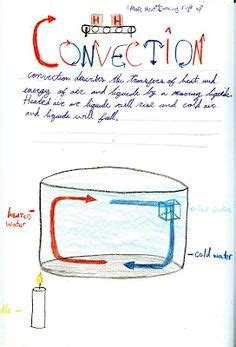 H H
CONVECTION
convection describes the transfers of heat and
energy of air and liquids by a moving liquids.
Heated air or liquids will rise and cold air
and liquids will fall.
heated water
ice cube
cold water